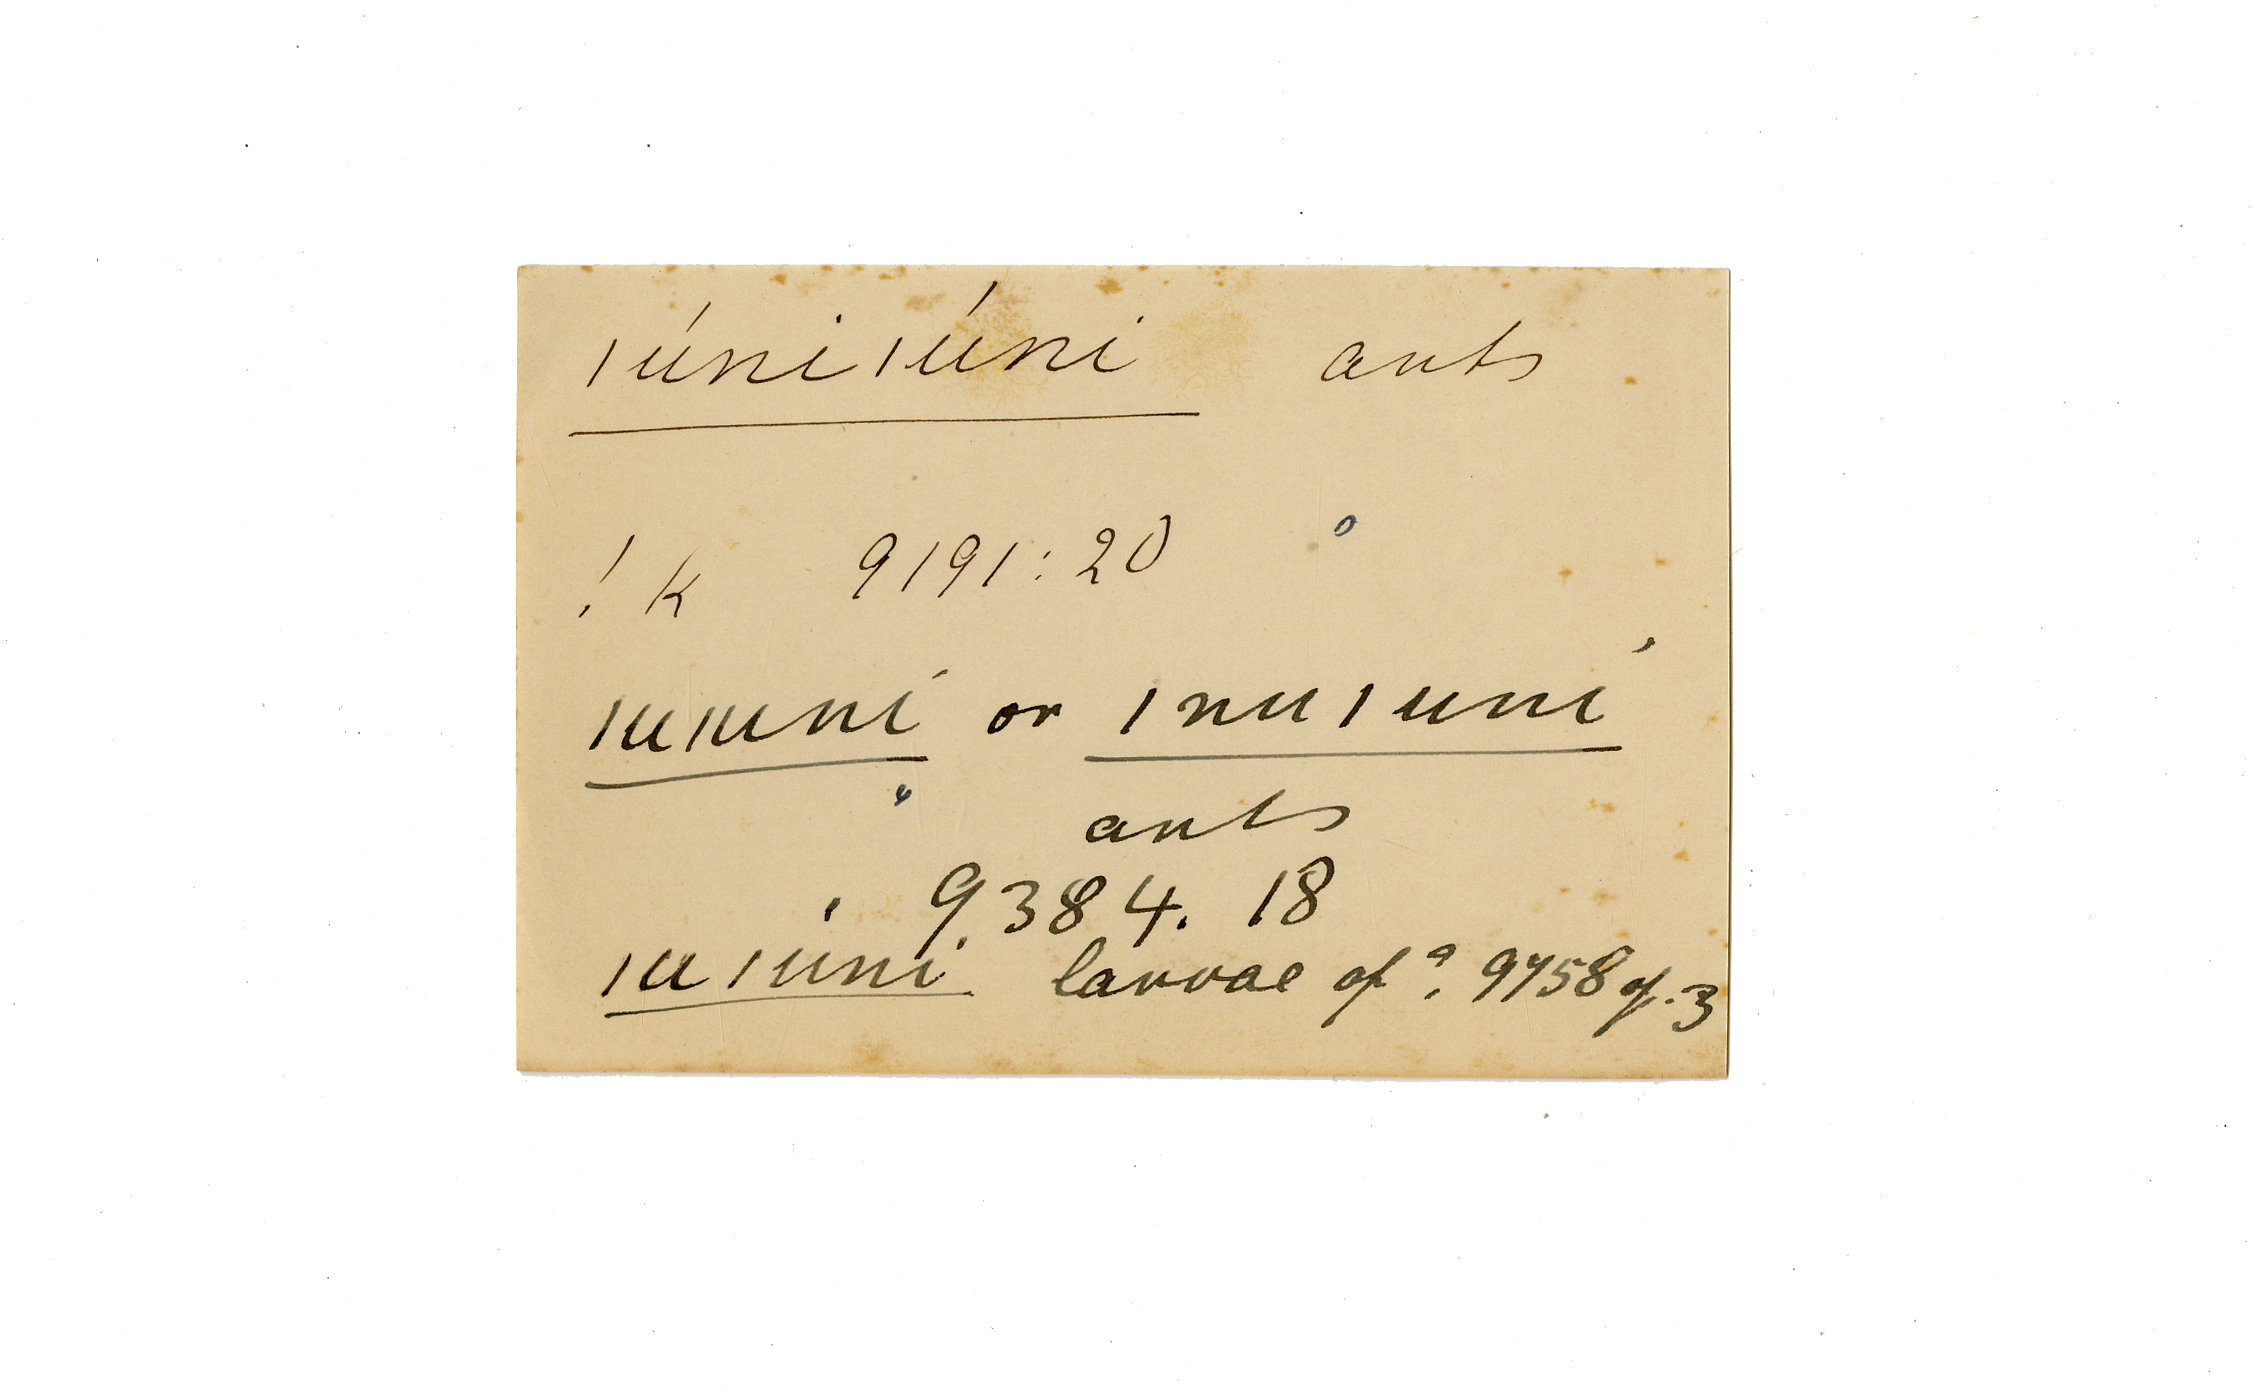 ǀúniǀúni ants
!k 9191:20
ǀuǀuní or ǀnuǀuní
ants
9384. 18
ǀuǀúni larvae of? 9758 of. 3